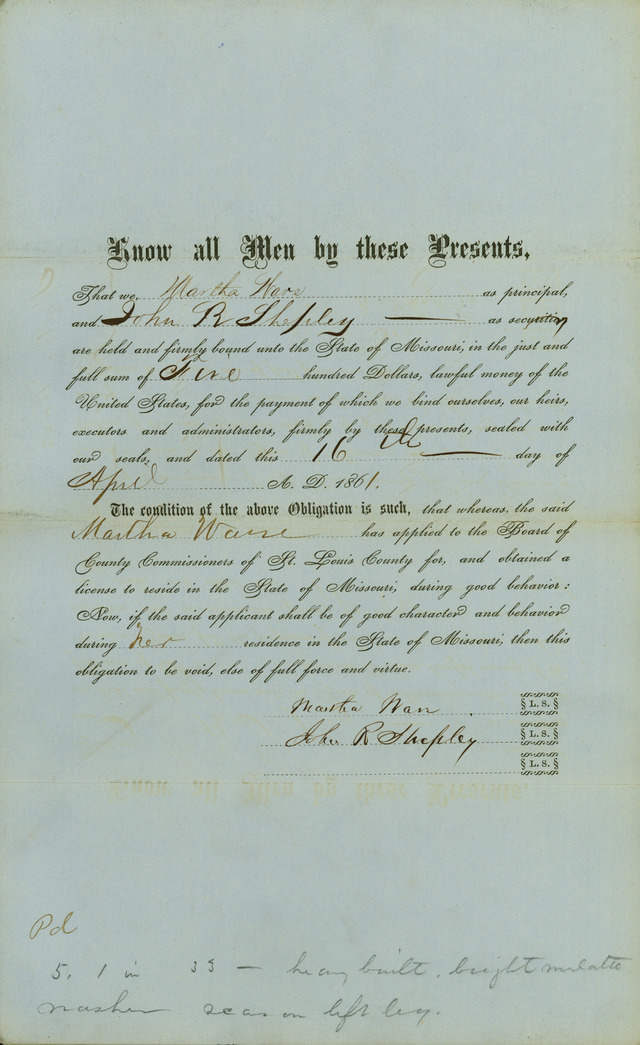 Know all Men by these Presents,
That we, Martha Ware as principal,
and John R Shepley — as security
are held and firmly bound unto the State of Missouri, in the just and
full sum of Five hundred Dollars, lawful money of the
United States, for the payment of which we bind ourselves, our heirs,
executors and administrators, firmly by these presents, sealed with
our seals, and dated this 16th — day of
April A. D. 1861.
The condition of the above Obligation is such, that whereas, the said
Martha has applied to the Board of
County Commissioners of St. Louis County for, and obtained a
license to reside in the State of Missouri, during good behavior:
Now, if the said applicant shall be of good character and behavior
during her residence in the State of Missouri, then this
obligation to be void, else of full force and virtue.
Martha § L. S. §
John R Shepley § L. S. §
§ L. S. §
Pd
5. 1 in 39 — heavy built, bright mulatto
washer scar on left leg.